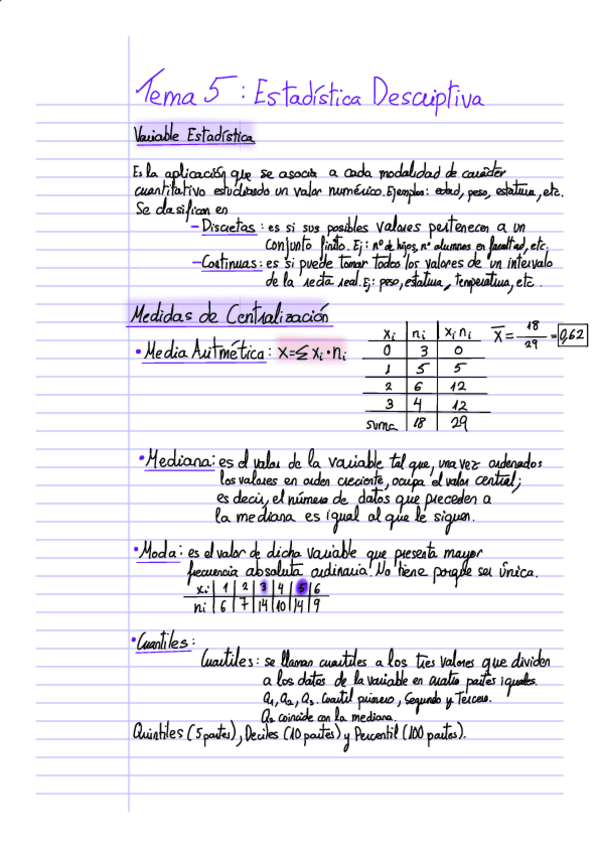 Tema 5 : Estadística Descriptiva
Variable Estadística
Es la aplicación que se asocia a cada modalidad de carácter
cuantitativo estudiando un valor numérico. Ejemplos: edad, peso, estatura, etc.
Se clasifican en
- Discretas : es si sus posibles valores pertenecen a un
conjunto finito. Ej: nº de hijos, nº alumnos en facultad, etc.
- Continuas: es si puede tomar todos los valores de un intervalo
de la recta real. Ej: peso, estatura, temperatura, etc.
Medidas de Centralización
• Media Aritmética : X=Σ xi·ni
xi ni xini
0 3 0
1 5 5
2 6 12
3 4 12
suma 18 29
X̅ = 18/29 = 0,62
• Mediana: es el valor de la variable tal que, una vez ordenados
los valores en orden creciente, ocupa el valor central;
es decir, el número de datos que preceden a
la mediana es igual al que le siguen.
• Moda: es el valor de dicha variable que presenta mayor
frecuencia absoluta ordinaria. No tiene porque ser única.
xi 1 2 3 4 5 6
ni 6 7 14 10 14 9
• Cuantiles :
Cuartiles: se llaman cuartiles a los tres valores que dividen
a los datos de la variable en cuatro partes iguales.
Q1, Q2, Q3. Cuartil primero, Segundo y Tercero.
Q2 coincide con la mediana.
Quintiles (5 partes), Deciles (10 partes) y Percentil (100 partes).